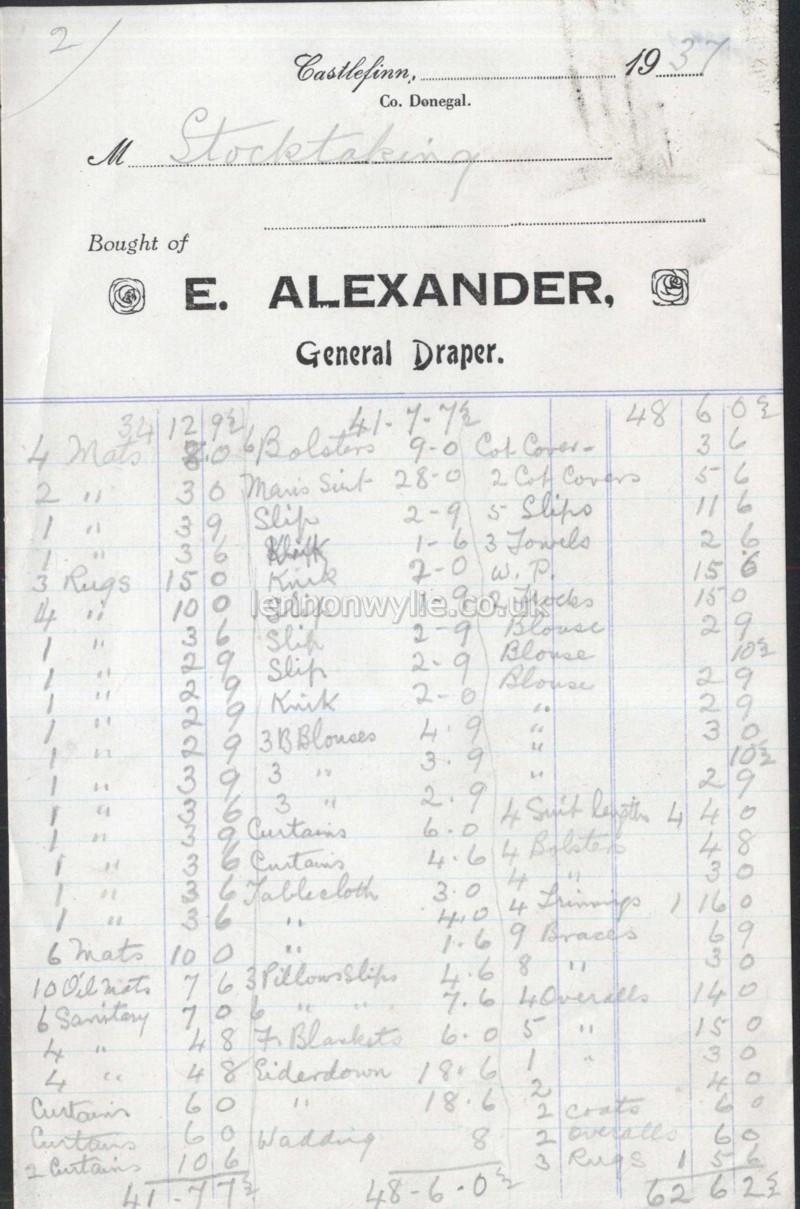 2
Castlefinn, 1937
Co. Donegal.
M Stocktaking
Bought of
E. ALEXANDER,
General Draper.
34 12 9½
4 Mats 8 0
2 " 3 0
1 " 3 9
1 " 3 6
3 Rugs 15 0
4 " 10 0
1 " 3 6
1 " 2 9
1 " 2 9
1 " 2 9
1 " 2 9
1 " 3 9
1 " 3 6
1 " 3 9
1 " 3 6
1 " 3 6
1 " 3 6
6 Mats 10 0
10 Oil Mats 7 6
6 Sanitary 7 0
4 " 4 8
4 " 4 8
Curtains 6 0
Curtains 6 0
2 Curtains 10 6
41-7 7½
41-7-7½
6 Bolsters 9-0
Man's Suit 28-0
Slip 2-9
1-6
Knik 2-0
Slip 1-9
Slip 2-9
Slip 2-9
Knik 2-0
3 B Blouses 4.9
3 " 3.9
3 " 2.9
Curtains 6.0
Curtains 4.6
Tablecloth 3.0
" 4.0
" 1.6
3 Pillow Slips 4.6
6 " " 7.6
Fr Blankets 6.0
Eiderdown 18.6
" 18.6
Wadding 8
48-6.0½
48 6 0½
Cot Cover- 3 6
2 Cot Covers 5 6
5 Slips 11 6
3 Towels 2 6
W.P. 15 6
2 Frocks 15 0
Blouse 2 9
Blouse 10½
Blouse 2 9
" 2 9
" 3 0
" 10½
" 2 9
4 Suit lengths 4 4 0
4 Bolsters 4 8
4 " 3 0
4 Trimmings 1 16 0
9 Braces 6 9
8 " 3 0
4 Overalls 14 0
5 " 15 0
1 " 3 0
2 4 0
2 coats 6 0
2 overalls 6 0
3 Rugs 1 5 6
62 6 2½
lennonwylie.co.uk